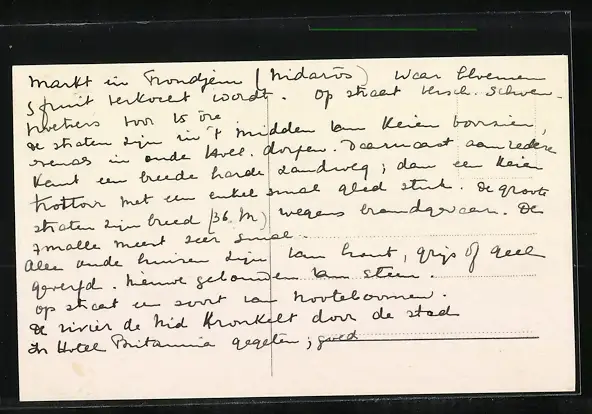 Markt in Trondjem (Nidarös) waar bloemen
& fruit verkocht wordt. Op straat versch. schoen-
poetsers voor 15 öre
De straten zijn in 't midden van keien voorzien,
evenals in oude Holl. dorpen. Daarnaast aan iedere
kant een breede harde zandweg; dan een keien
trottoir met een enkel smal glad stuk. De groote
straten zijn breed (36 M) wegens brandgevaar. De
smalle meest zeer smal.
Alle oude huizen zijn van hout, grijs of geel
geverfd. Nieuwe gebouwen van steen.
Op straat een soort van noteboomen.
De rivier de Nid kronkelt door de stad
In Hotel Britannia gegeten; goed